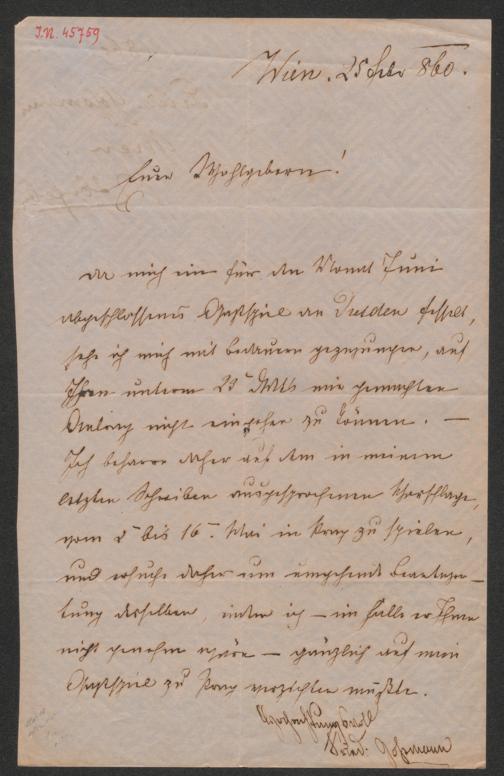 I.N. 45759
Wien. 25 Febr 860.
Euer Wohlgeboren!
Da mich ein für den Monat Juni
abgeschlossenes Gastspiel an Dresden fesselt,
sehe ich mich mit Bedauern gezwungen, auf
Ihren unterm 23 dMts mir gemachten
Antrag nicht eingehen zu können. —
Ich beharre daher auf dem in meinem
letzten Schreiben ausgesprochenen Vorschlage,
vom 2 bis 16 Mai in Prag zu spielen,
und ersuche daher um umgehende Beantwor-
tung desselben, indem ich – im Falle er Ihnen
nicht genehm wäre – gänzlich auf mein
Gastspiel zu Prag verzichten müßte.
Hochachtungsvoll
Goßmann